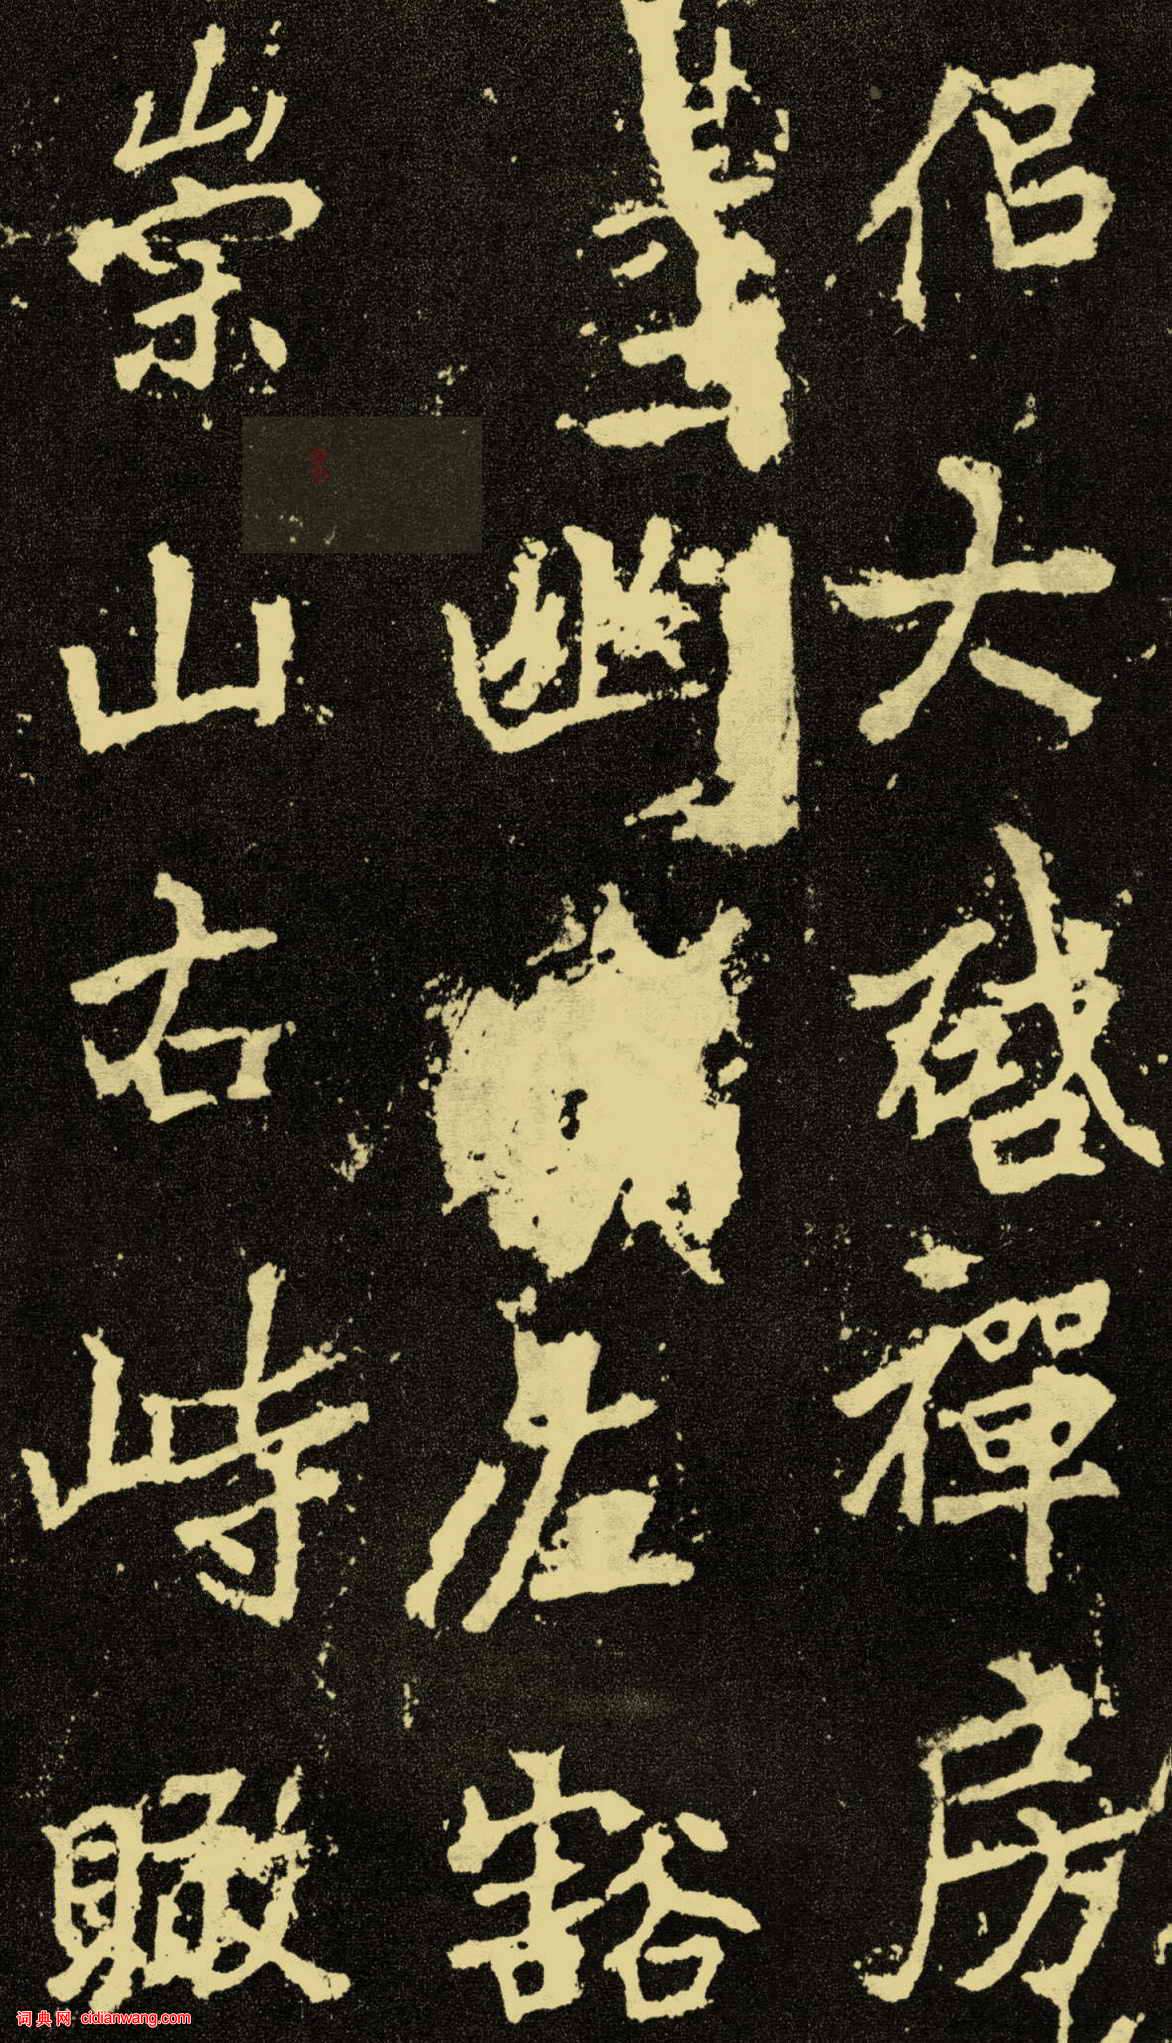 侣大啓禪房
幽左豁
崇山右峙瞰
词典网 cidianwang.com